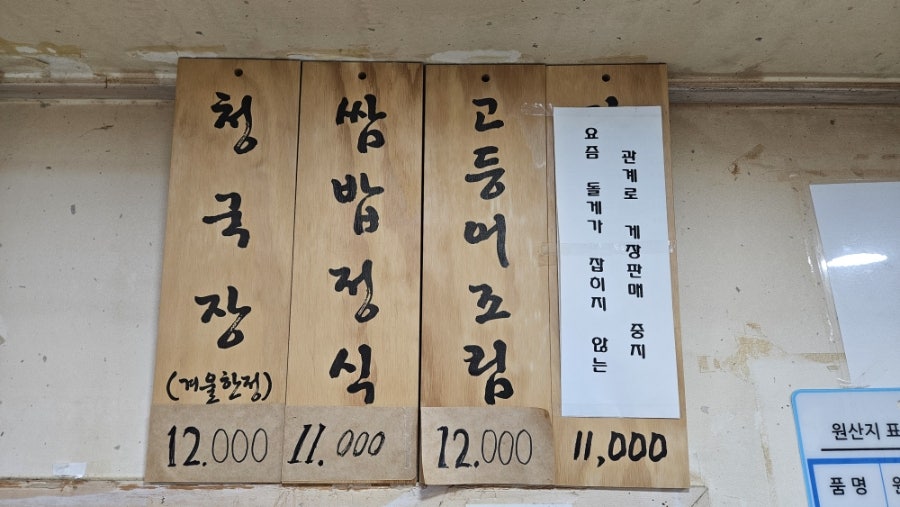 청국장
(겨울한정)
12.000
쌈밥정식
11.000
고등어조림
12.000
요즘 돌게가 잡히지 않는
관계로 게장판매 중지
11,000
원산지 표
품명